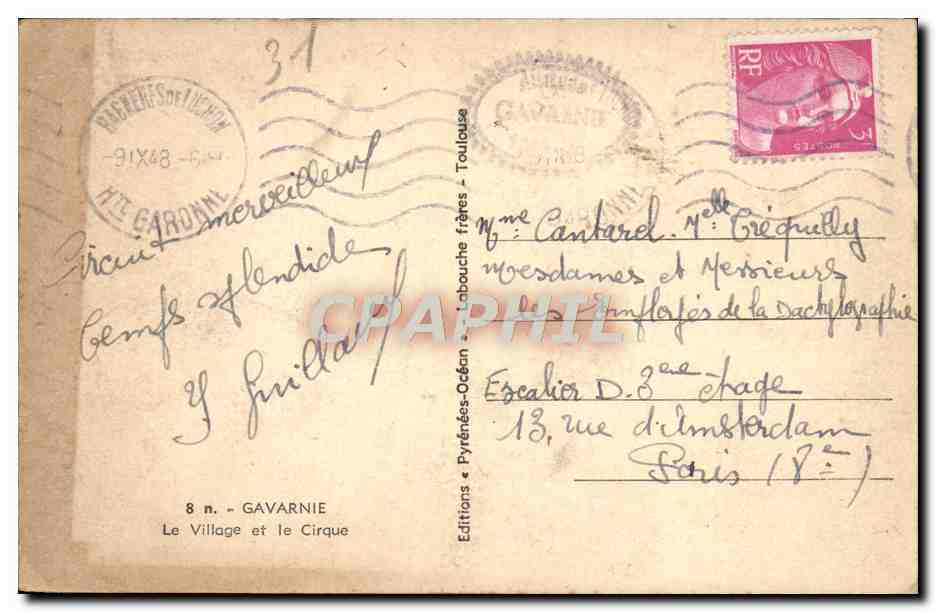 31
BAGNERES DE LUCHON
-9 IX 48
Hte GARONNE
GAVARNIE
RF
3F
POSTES
Circuit merveilleux
temps splendide
Y Guillaux
8 n. - GAVARNIE
Le Village et le Cirque
Editions « Pyrénées-Océan » Labouche frères - Toulouse
Mme Cantarel. Melle Tréquilly
Mesdames et Messieurs
les Employés de la Dactylographie
Escalier D. 3ème étage
13, rue d'Amsterdam
Paris (8e)
CPAPHIL